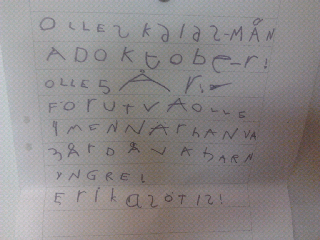 OLLES KALAS-MÅN
ADOKtober-r!
OLLE 5 år
FORUTVAOLLE
IMENNARhANVA
BARDÅVAhARN
YNGRE!
ErikaSÖTIS!